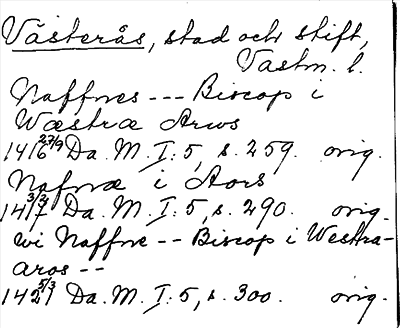 Västerås, stad och stift,
Vastm. l.
Naffnes --- Biscop i
Wæstræ Arws
14 27/9 16 Da. M. I: 5, s. 259. orig.
Nafnæ i Aors
14 3/2 17 Da. M. I: 5, s. 290. orig.
wi Naffne -- Biscop i Westra-
aros --
14 5/3 21 Da. M. I: 5, s. 300. orig.